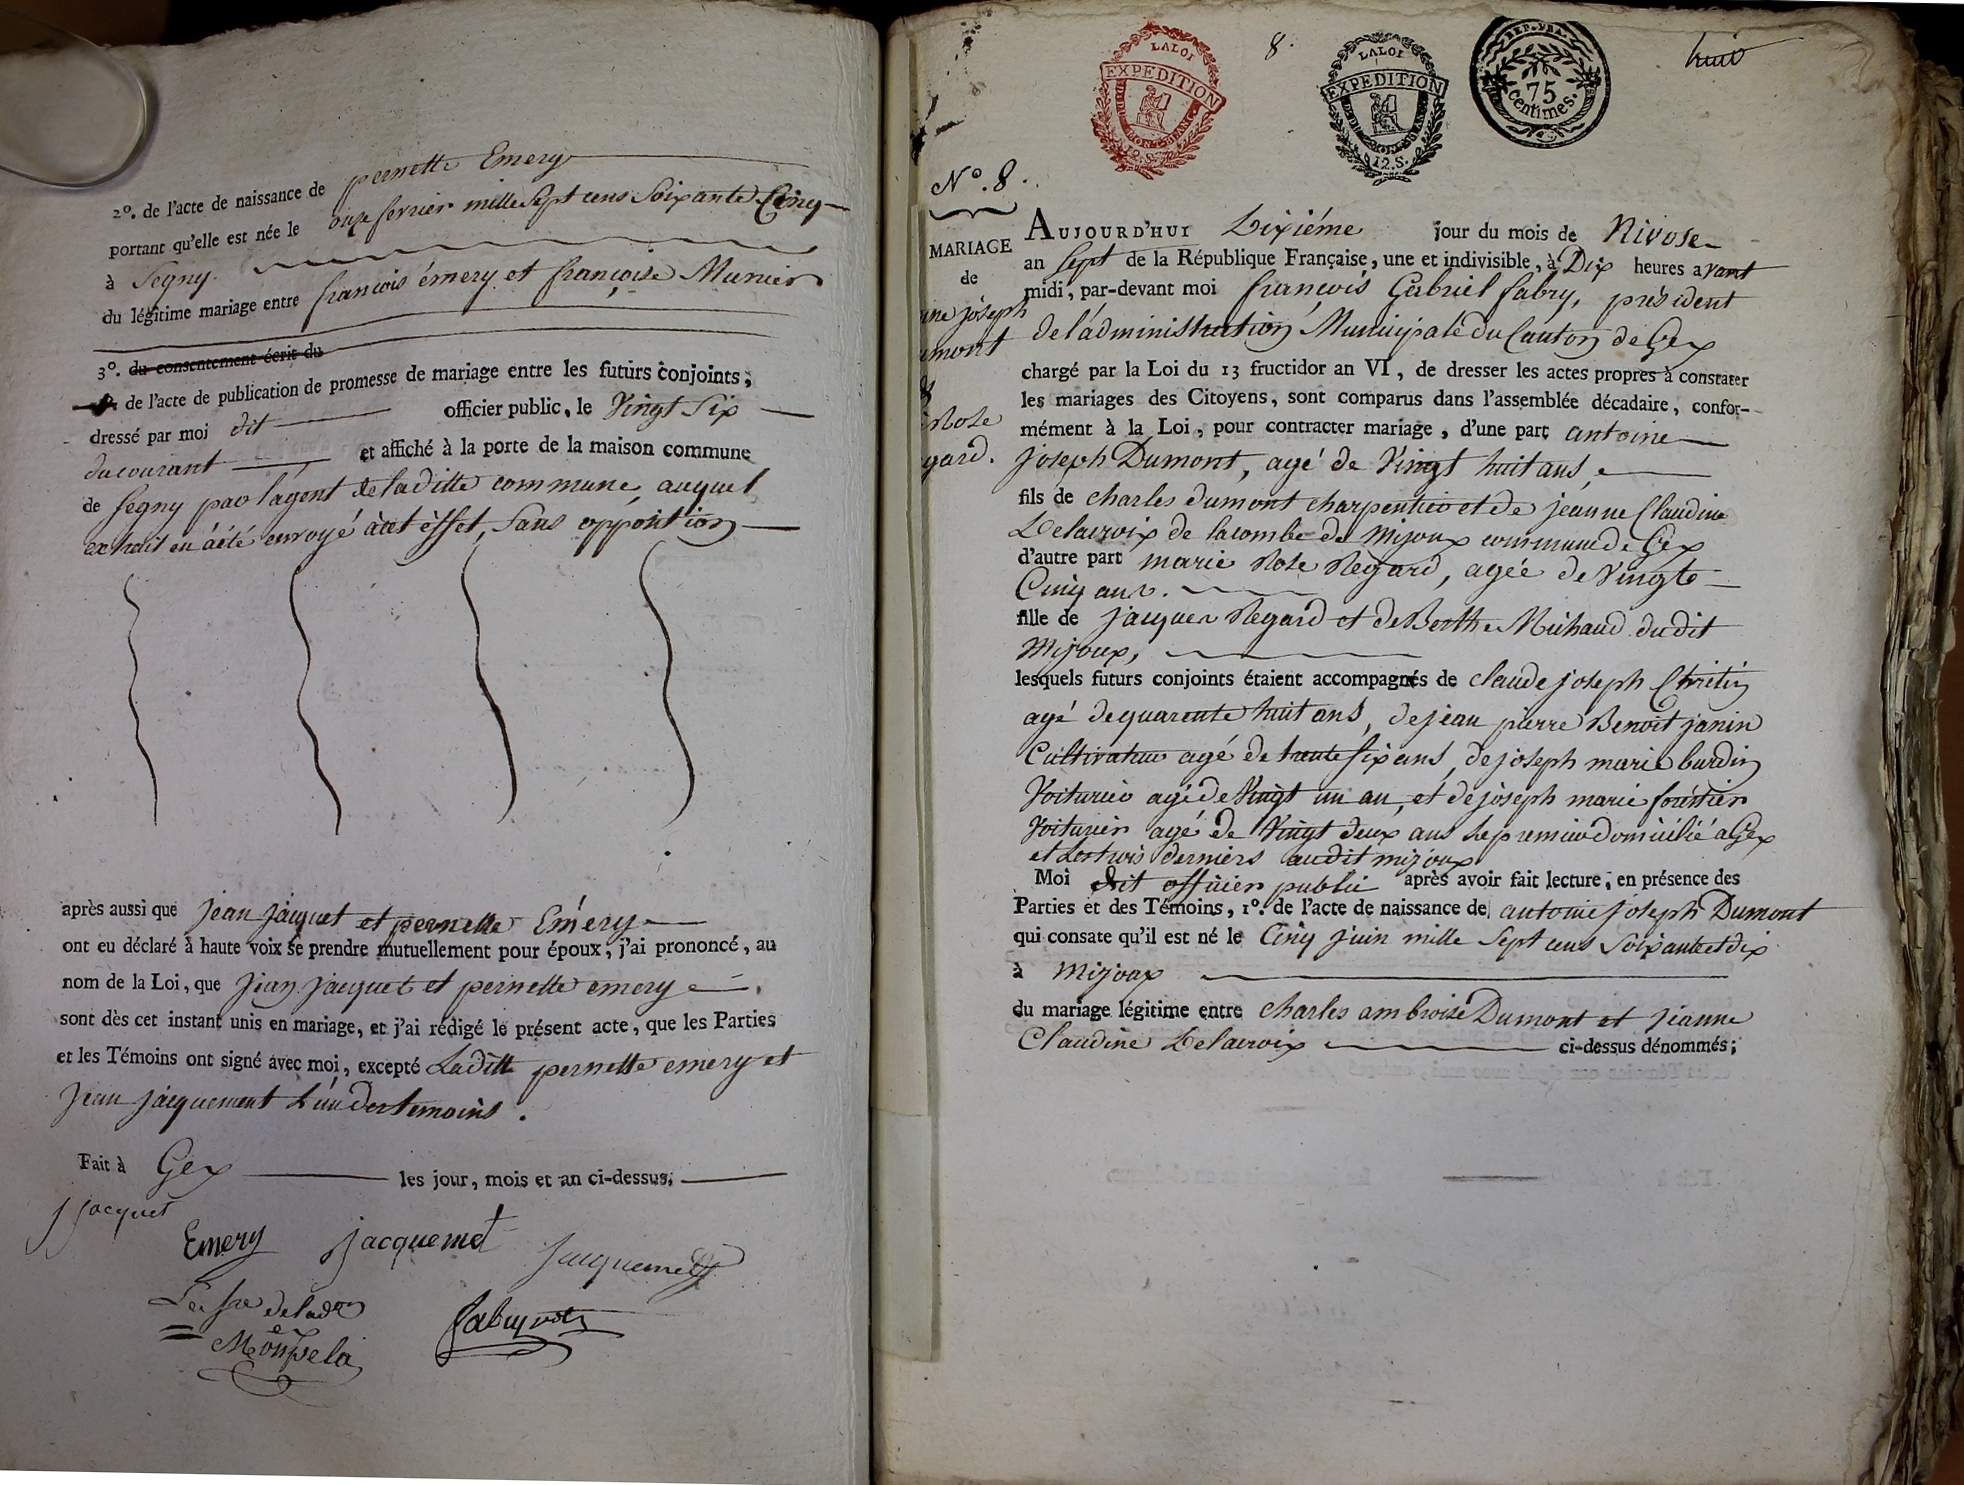 2º. de l'acte de naissance de pernette Emery
portant qu'elle est née le onze fevrier mille Sept cens Soixante Cinq
à Segny
du légitime mariage entre francois émery et françoise Munier
3º. du consentement écrit du
de l'acte de publication de promesse de mariage entre les futurs conjoints ;
dressé par moi dit officier public, le Vingt Six
du courant et affiché à la porte de la maison commune
de Segny par l'agent de laditte commune, auquel
extrait en a été envoyé à cet effet, Sans opposition
après aussi que jean jacquet et pernette Emery
ont eu déclaré à haute voix se prendre mutuellement pour époux, j'ai prononcé, au
nom de la Loi, que jean jacquet et pernette emery
sont dès cet instant unis en mariage, et j'ai rédigé le présent acte, que les Parties
et les Témoins ont signé avec moi, excepté Laditte pernette emery et
jean jacquement L'un des temoins .
Fait à Gex les jour, mois et an ci-dessus.
j jacquet
Emery jacquemet Jacquemet
de
LALOI
EXPEDITION
12.S.
8.
LALOI
EXPEDITION
12.S.
REP. FRA.
75
Centimes.
huit
Nº. 8.
MARIAGE
de
joseph
mont
&
Rose
gard.
AUJOURD'HUI Dixiéme jour du mois de Nivose
an Sept de la République Française, une et indivisible, à Dix heures avant
midi, par-devant moi françois Gabriel fabry, président
de l'administration Municipale du Canton de Gex
chargé par la Loi du 13 fructidor an VI, de dresser les actes propres à constater
les mariages des Citoyens, sont comparus dans l'assemblée décadaire, confor-
mément à la Loi, pour contracter mariage, d'une part antoine
joseph Dumont, agé de Vingt huit ans,
fils de charles dumont charpentier et de jeanne Claudine
Delacroix de lacombe de Mijoux commune de Gex
d'autre part marie Rose Regard, agée de Vingt
Cinq ans.
fille de jacques Regard et de Berthe Michaud dudit
Mijoux,
lesquels futurs conjoints étaient accompagnés de claude joseph Chrétin
agé de quarente huit ans, de jean pierre Benoit janin
Cultivateur agé de trente Six ans, de joseph marie burdin
Voiturier agé de Vingt un an, et de joseph marie fournier
Voiturier agé de Vingt deux ans le premier domicilié a Gex
et les trois derniers audit mijoux
Moi dit officier public après avoir fait lecture, en présence des
Parties et des Témoins, 1º. de l'acte de naissance de antoine joseph Dumont
qui consate qu'il est né le Cinq juin mille Sept cens Soixante et dix
à Mijoux
du mariage légitime entre charles ambroise Dumont et jeanne
Claudine Delacroix ci-dessus dénommés ;